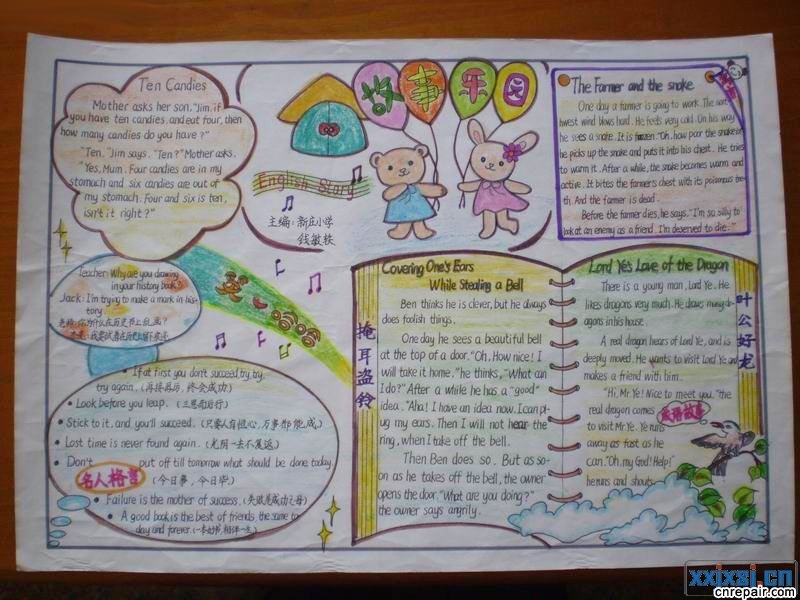 Ten Candies
Mother asks her son, "Jim, if
you have ten candies, and eat four, then
how many candies do you have?"
"Ten." Jim says. "Ten?" Mother asks.
"Yes, Mum. Four candies are in my
stomach and six candies are out of
my stomach. Four and six is ten,
isn't it right?"
故事乐园
English Story
主编：新庄小学
钱敏轶
The Farmer and the snake
One day a farmer is going to work. The nort
hwest wind blows hard. He feels very cold. On his way
he sees a snake. It is frozen. "Oh, how poor the snake is!"
he picks up the snake and puts it into his chest. He tries
to warm it. After a while, the snake becomes warm and
active. It bites the farmer's chest with its poisonous tee
th. And the farmer is dead.
Before the farmer dies, he says, "I'm so silly to
look at an enemy as a friend. I'm deserved to die."
Teacher: Why are you drawing
in your history book?
Jack: I'm trying to make a mark in his-
tory.
老师：你为什么在历史书上乱画？
杰克：我要试着在历史上留下痕迹
If at first you don't succeed, try, try,
try again. (再接再厉，终会成功)
Look before you leap. (三思而后行)
Stick to it, and you'll succeed. (只要人有恒心，万事都能成。)
Lost time is never found again. (光阴一去不复返)
Don't put off till tomorrow what should be done today.
名人格言 (今日事，今日毕)
Failure is the mother of success. (失败是成功之母)
A good book is the best of friends, the same to
day and forever. (一本好书，相伴一生)
掩耳盗铃
Covering One's Ears
While Stealing a Bell
Ben thinks he is clever, but he always
does foolish things.
One day he sees a beautiful bell
at the top of a door. "Oh, How nice! I
will take it home." he thinks, "What can
I do?" After a while he has a "good"
idea, "Aha! I have an idea now. I can pl
ug my ears. Then I will not hear the
ring, when I take off the bell.
Then Ben does so. But as so-
on as he takes off the bell, the owner
opens the door. "What are you doing?"
the owner says angrily.
Lord Ye's Love of the Dragon
There is a young man, Lord Ye. He
likes dragons very much. He draws many dr
agons in his house.
A real dragon hears of Lord Ye, and is
deeply moved. He wants to visit Lord Ye and
makes a friend with him.
"Hi, Mr. Ye! Nice to meet you." the
real dragon comes
to visit Mr. Ye. Ye runs
away as fast as he
can. "Oh, my God! Help!"
he runs and shouts.
成语故事
叶公好龙
xxixsi.cn
cnrepair.com